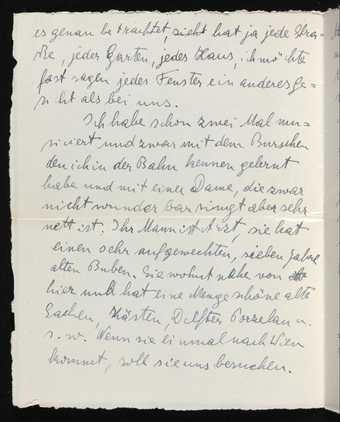 es genau betrachtet, sieht hat ja jede Stra-
ße, jeder Garten, jedes Haus, ich möchte
fast sagen jedes Fenster ein anderes Ge-
sicht als bei uns.
Ich habe schon zwei Mal mu-
siziert und zwar mit dem Burschen
den ich in der Bahn kennen gelernt
habe und mit einer Dame, die zwar
nicht wunderbar singt aber sehr
nett ist. Ihr Mann ist Arzt, sie hat
einen sehr aufgeweckten, sieben Jahre
alten Buben. Sie wohnt nahe von
hier und hat eine Menge schöne alte
Sachen, Kästen, Delfter Porzelan u.
s. w. Wenn sie einmal nach Wien
kommt, soll sie uns besuchen.